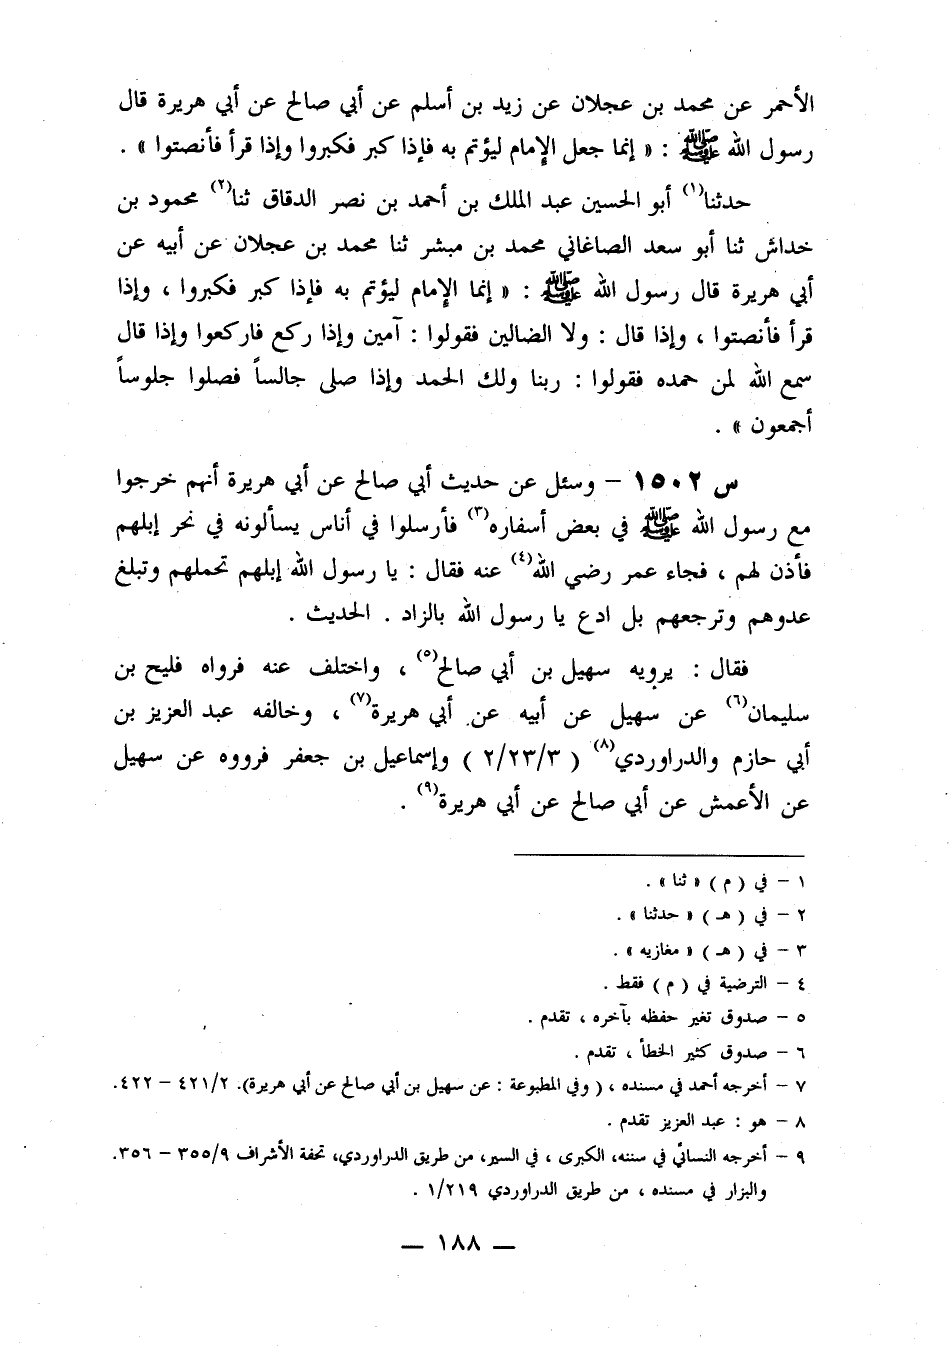 الأحمر عن محمد بن عجلان عن زيد بن أسلم عن أبي صالح عن أبي هريرة قال
رسول الله ﷺ : « إنما جعل الإمام ليؤتم به فإذا كبر فكبروا وإذا قرأ فأنصتوا » .
حدثنا(١) أبو الحسين عبد الملك بن أحمد بن نصر الدقاق ثنا(٢) محمود بن
خداش ثنا أبو سعد الصاغاني محمد بن مبشر ثنا محمد بن عجلان عن أبيه عن
أبي هريرة قال رسول الله ﷺ : « إنما الإمام ليؤتم به فإذا كبر فكبروا ، وإذا
قرأ فأنصتوا ، وإذا قال : ولا الضالين فقولوا : آمين وإذا ركع فاركعوا وإذا قال
سمع الله لمن حمده فقولوا : ربنا ولك الحمد وإذا صلى جالساً فصلوا جلوساً
أجمعون » .
س ١٥٠٢ – وسئل عن حديث أبي صالح عن أبي هريرة أنهم خرجوا
مع رسول الله ﷺ في بعض أسفاره(٣) فأرسلوا في أناس يسألونه في نحر إبلهم
فأذن لهم ، فجاء عمر رضي الله(٤) عنه فقال : يا رسول الله إبلهم تحملهم وتبلغ
عدوهم وترجعهم بل ادع يا رسول الله بالزاد . الحديث .
فقال : يرويه سهيل بن أبي صالح(٥) ، واختلف عنه فرواه فليح بن
سليمان(٦) عن سهيل عن أبيه عن أبي هريرة(٧) ، وخالفه عبد العزيز بن
أبي حازم والدراوردي(٨) ( ٢/٢٣/٣ ) وإسماعيل بن جعفر فرووه عن سهيل
عن الأعمش عن أبي صالح عن أبي هريرة(٩) .
١ – في ( م ) « ثنا » .
٢ – في ( هـ ) « حدثنا » .
٣ – في ( هـ ) « مغازيه » .
٤ – الترضية في ( م ) فقط .
٥ – صدوق تغير حفظه بآخره ، تقدم .
٦ – صدوق كثير الخطأ ، تقدم .
٧ – أخرجه أحمد في مسنده ، ( وفي المطبوعة : عن سهيل بن أبي صالح عن أبي هريرة). ٤٢١/٢ – ٤٢٢.
٨ – هو : عبد العزيز تقدم .
٩ – أخرجه النسائي في سننه، الكبرى ، في السير، من طريق الدراوردي، تحفة الأشراف ٣٥٥/٩ – ٣٥٦.
والبزار في مسنده ، من طريق الدراوردي ١/٢١٩ .
— ١٨٨ —